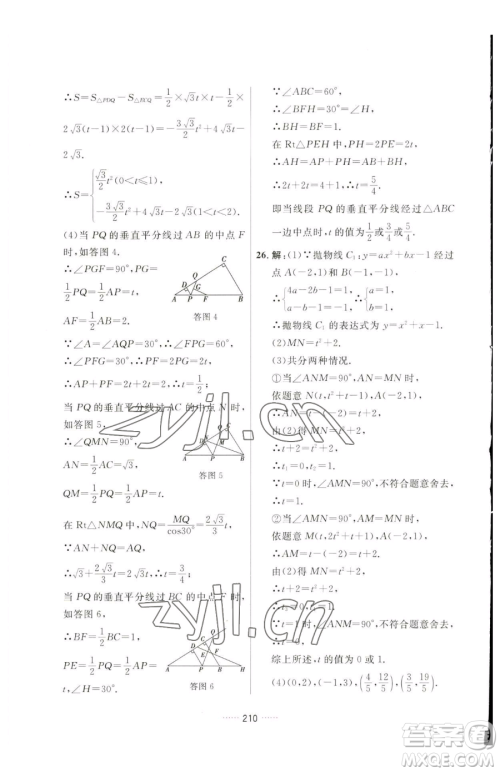 ∴S=S△PDQ-S△PBQ=1/2×√3t×√3t-1/2×
2√3(t-1)×2(t-1)=-3√3/2t²+4√3t-
2√3.
∴S={√3/2t²(0<t≤1)
(4)当 PQ 的垂直平分线过 AB 的中点 F
时,如答图 4.
∴∠PGF=90°,PG=
1/2PQ=1/2AP=t,
AF=1/2AB=2.
答图 4
∵∠A=∠AQP=30°,∴∠FPG=60°.
∴∠PFG=30°.∴PF=2PG=2t,
∴AP+PF=2t+2t=2,∴t=1/2;
当 PQ 的垂直平分线过 AC 的中点 N 时,
如答图 5,
∴∠QMN=90°,
AN=1/2AC=√3,
QM=1/2PQ=1/2AP=t.
答图 5
在 Rt△NMQ 中,NQ=MQ/cos30°=2√3/3t,
∵AN+NQ=AQ,
∴√3+2√3/3t=2√3t,∴t=3/4;
当 PQ 的垂直平分线过 BC 的中点 F
时,如答图 6,
∴BF=1/2BC=1,
PE=1/2PQ=1/2AP=
t,∠H=30°.
答图 6
∵∠ABC=60°,
∴∠BFH=30°=∠H,
∴BH=BF=1.
在 Rt△PEH 中,PH=2PE=2t,
∴AH=AP+PH=AB+BH,
∴2t+2t=4+1,∴t=5/4.
即当线段 PQ 的垂直平分线经过△ABC
一边中点时,t 的值为1/2或3/4或5/4.
26.解:(1)∵抛物线 C₁:y=ax²+bx-1 经过
∴{4a-2b-1=1, a+b-1=1, ∴{a=1, b=1.
∴抛物线 C₁ 的表达式为 y=x²+x-1.
(2)MN=t²+2.
(3)共分两种情况.
①当∠ANM=90°,AN=MN 时,
∴AN=t-(-2)=t+2.
由(2)得 MN=t²+2,
∴t+2=t²+2,
∴t₁=0,t₂=1.
∵t=1 时,∠AMN=90°,不符合题意舍去,
∴t=0.
②当∠AMN=90°,AM=MN 时,
∴AM=t-(-2)=t+2.
由(2)得 MN=t²+2,
∴t=0 或 t=1.
∵t=0 时,∠ANM=90°,不符合题意舍去,
∴t=1.
综上所述,t 的值为 0 或 1.
(4)(0,2),(-1,3),(4/5,12/5),(1/5,13/5).
210
zyjl.cn
答案